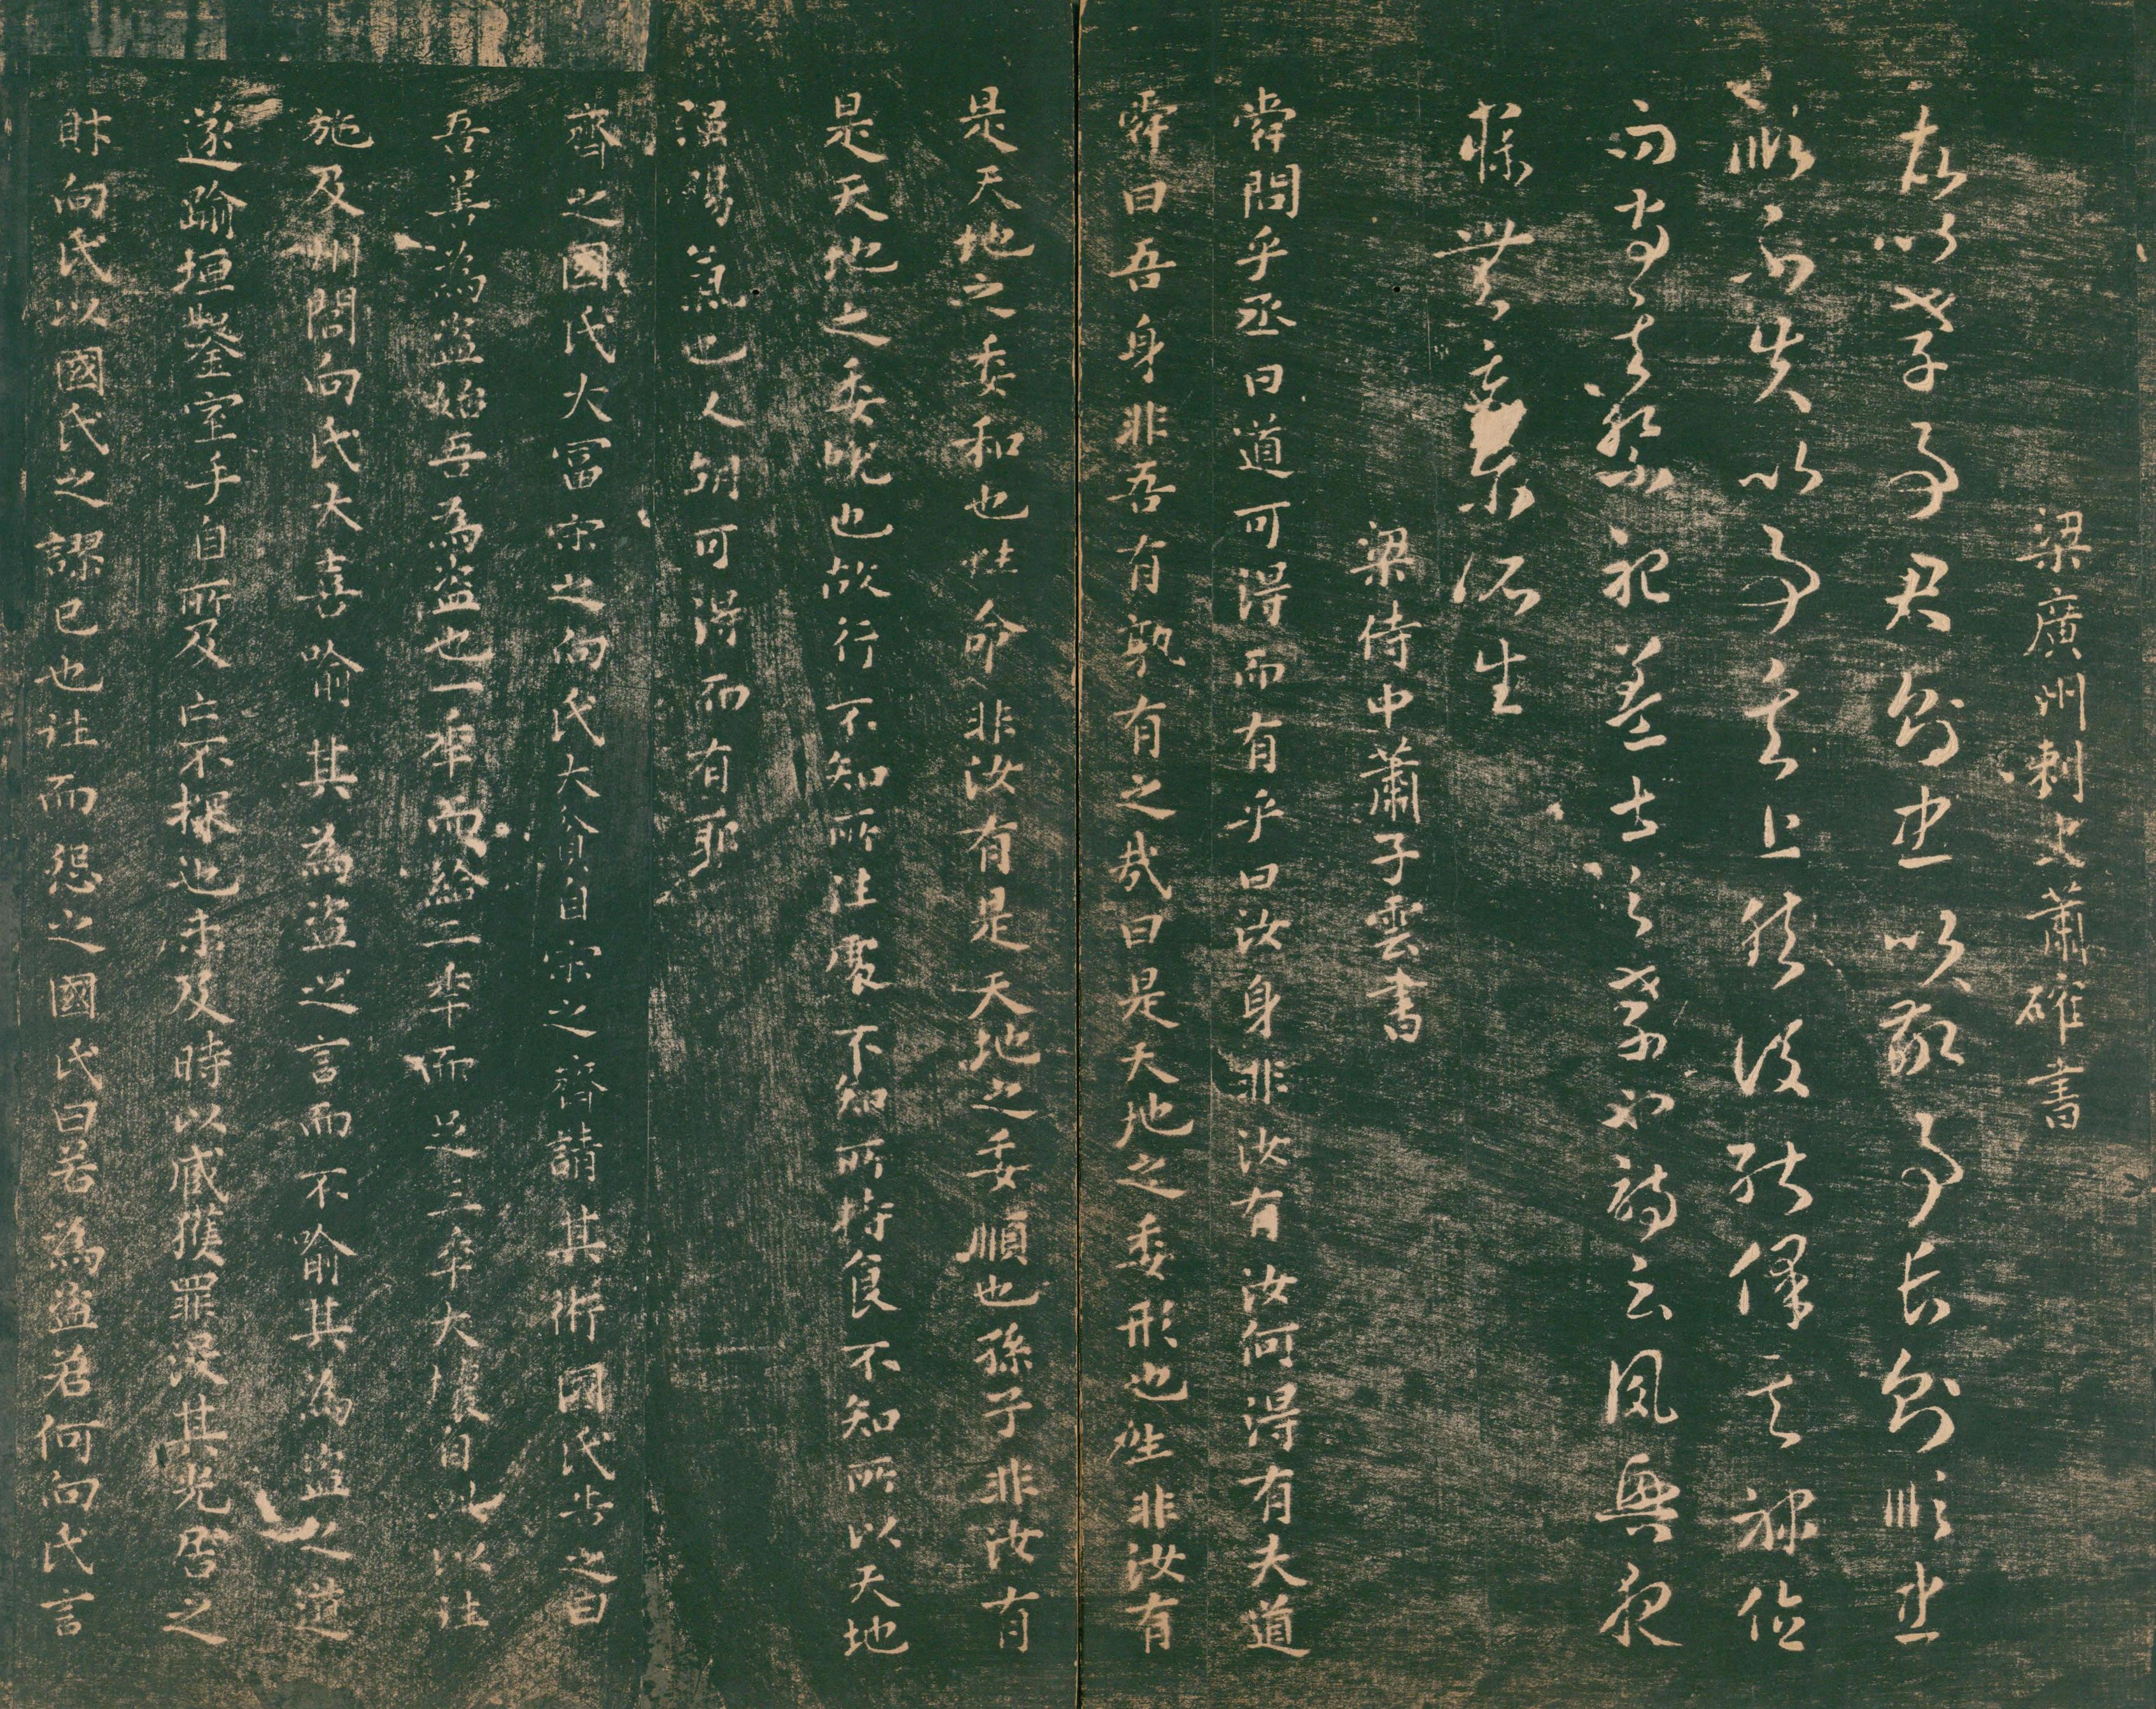 梁廣州刺史蕭確書
故以孝事君則忠以敬事長則順忠
順不失以事其上然後能保其祿位
而守其祭祀蓋士之孝也詩云夙興夜
寐無忝尔所生
梁侍中蕭子雲書
舜問乎丞曰道可得而有乎曰汝身非汝有汝何得有夫道
舜曰吾身非吾有孰有之哉曰是天地之委形也生非汝有
是天地之委和也性命非汝有是天地之委順也孫子非汝有
是天地之委蛻也故行不知所往處不知所持食不知所以天地
强陽氣也人胡可得而有耶
齊之國氏大冨宋之向氏大貧自宋之齊請其術國氏告之曰
吾善為盜始吾為盜也一年而給二年而足三年大壤自此以往
施及州閭向氏大喜喻其為盜之言而不喻其為盜之道
遂踰垣鑿室手自所及亡不探也未及時以臧獲罪沒其先居之
財向氏以國氏之謬已也往而怨之國氏曰若為盜若何向氏言